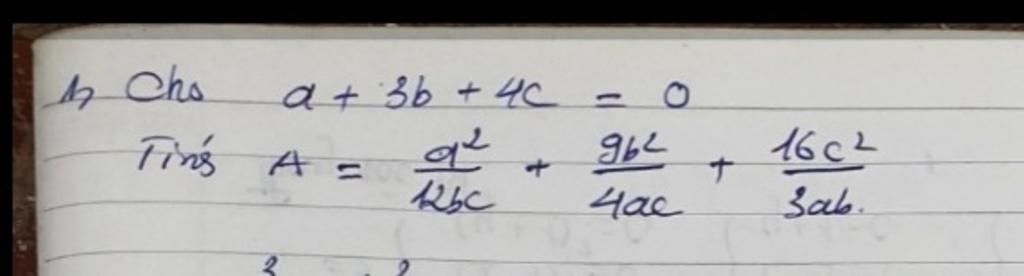 1, Cho a + 3b + 4c = 0
Tính A = a²/12bc + 9b²/4ac + 16c²/3ab.